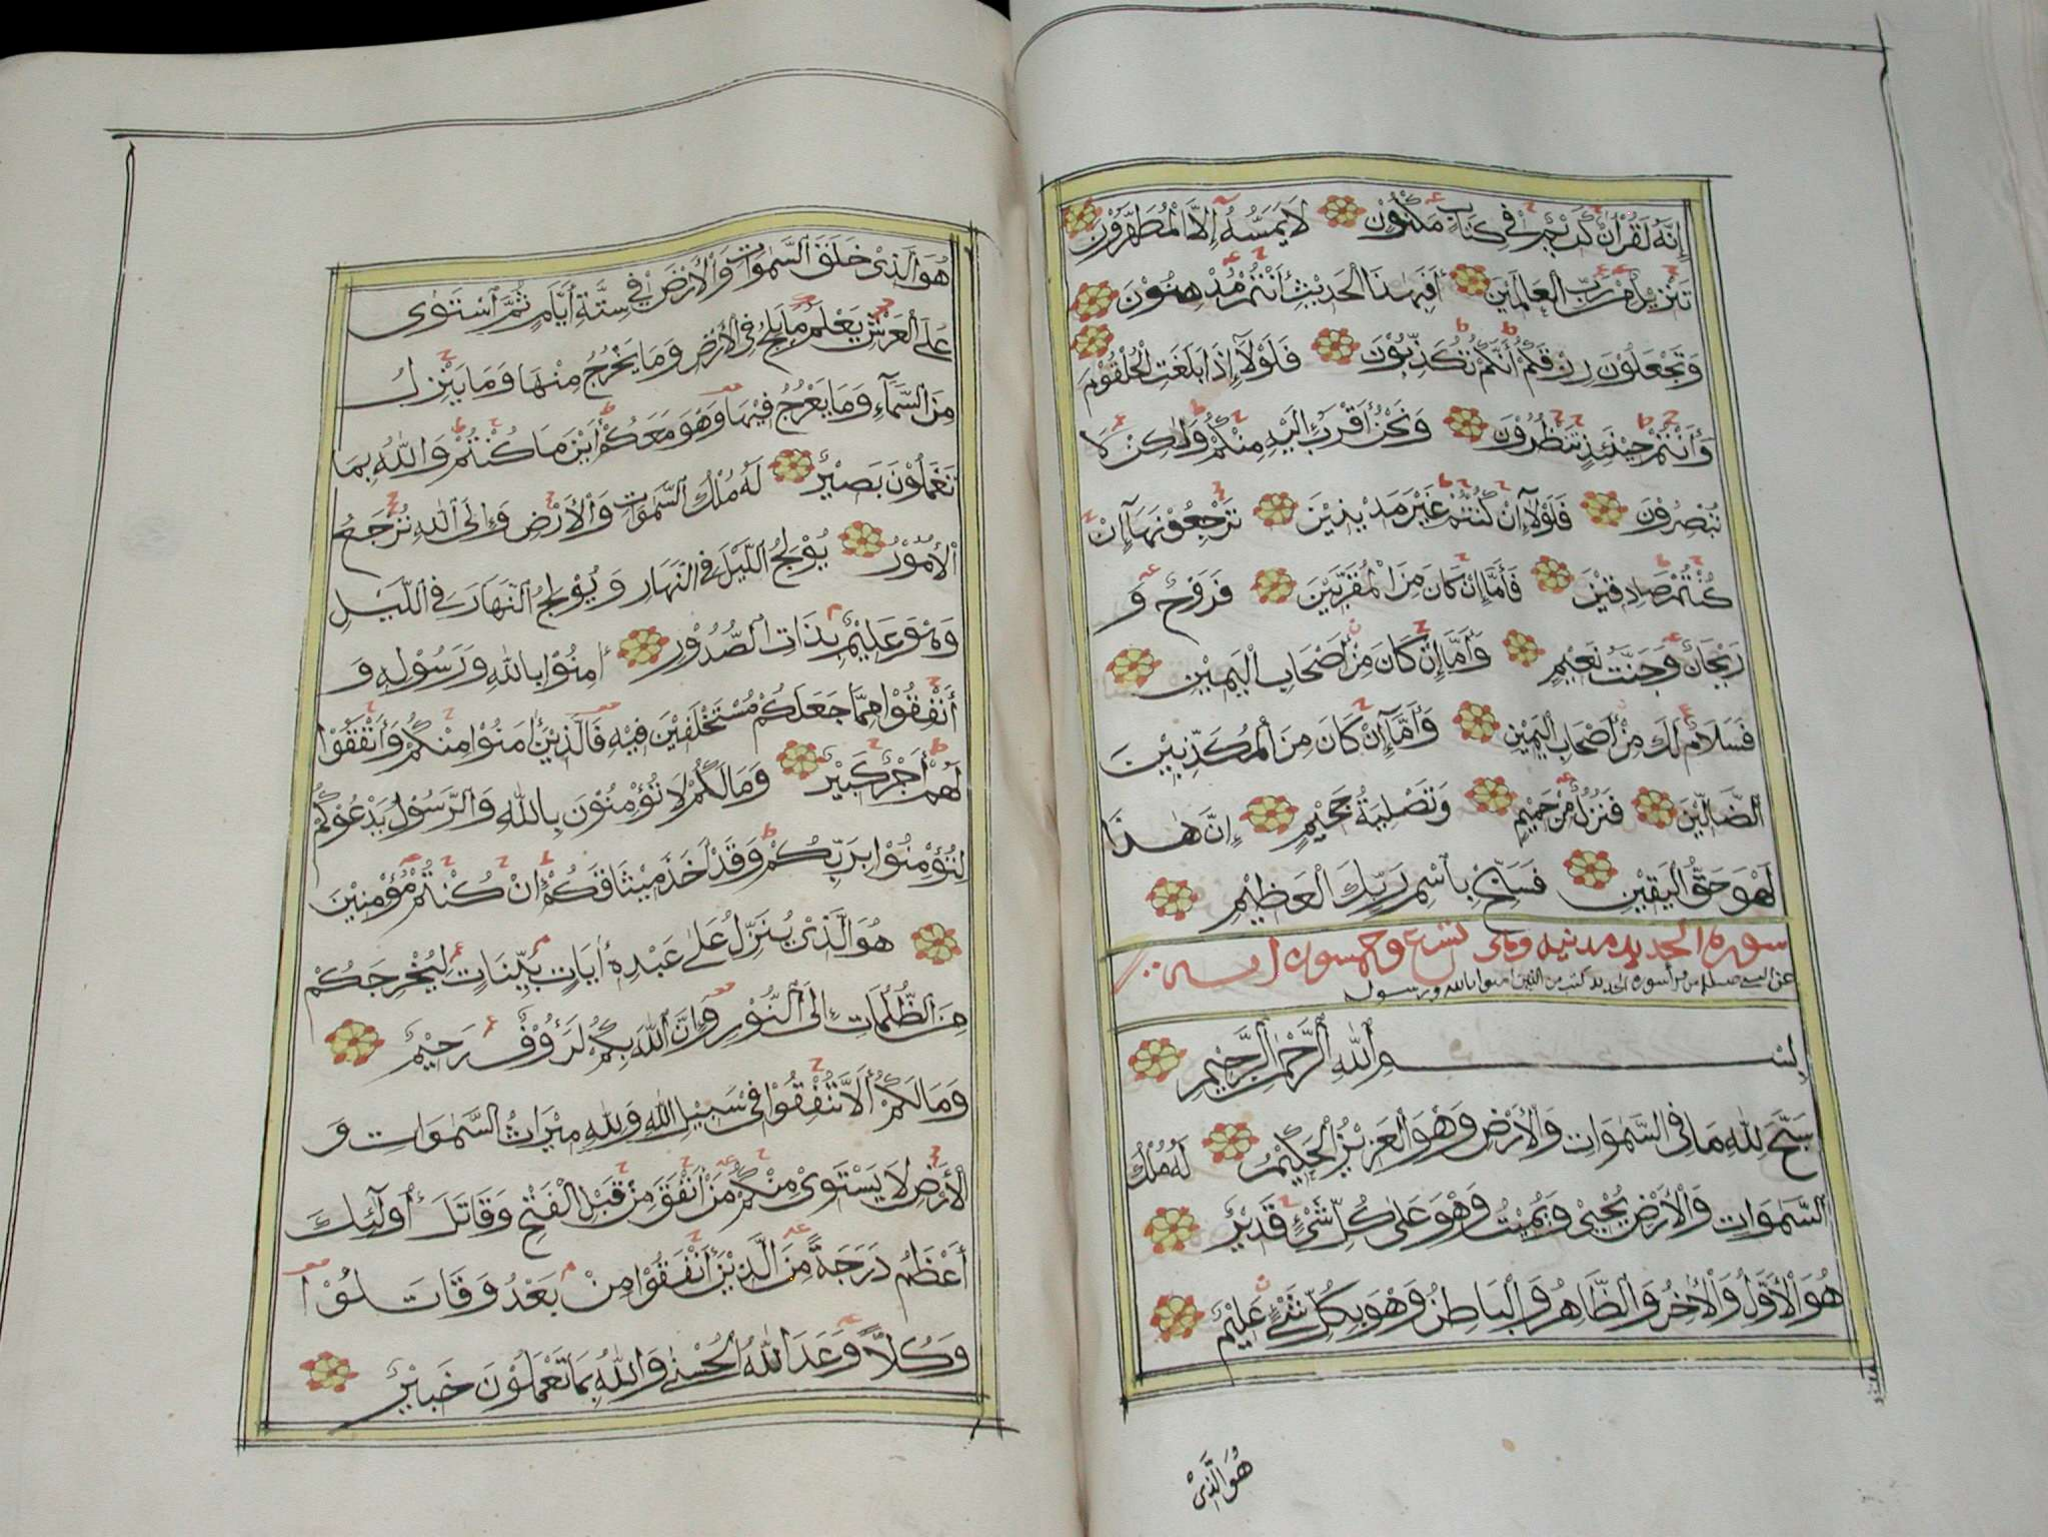 إِنَّهُ لَقُرْآنٌ كَرِيْمٌ فِي كِتَابٍ مَكْنُوْنٍ لَا يَمَسُّهُ إِلَّا الْمُطَهَّرُوْنَ
تَنْزِيْلٌ مِنْ رَبِّ الْعَالَمِيْنَ أَفَبِهٰذَا الْحَدِيْثِ أَنْتُمْ مُدْهِنُوْنَ
وَتَجْعَلُوْنَ رِزْقَكُمْ أَنَّكُمْ تُكَذِّبُوْنَ فَلَوْلَا إِذَا بَلَغَتِ الْحُلْقُوْمَ
وَأَنْتُمْ حِيْنَئِذٍ تَنْظُرُوْنَ وَنَحْنُ أَقْرَبُ إِلَيْهِ مِنْكُمْ وَلٰكِنْ لَا
تُبْصِرُوْنَ فَلَوْلَا إِنْ كُنْتُمْ غَيْرَ مَدِيْنِيْنَ تَرْجِعُوْنَهَا إِنْ
كُنْتُمْ صَادِقِيْنَ فَأَمَّا إِنْ كَانَ مِنَ الْمُقَرَّبِيْنَ فَرَوْحٌ وَ
رَيْحَانٌ وَجَنَّتُ نَعِيْمٍ وَأَمَّا إِنْ كَانَ مِنْ أَصْحَابِ الْيَمِيْنِ
فَسَلَامٌ لَكَ مِنْ أَصْحَابِ الْيَمِيْنِ وَأَمَّا إِنْ كَانَ مِنَ الْمُكَذِّبِيْنَ
الضَّالِّيْنَ فَنُزُلٌ مِنْ حَمِيْمٍ وَتَصْلِيَةُ جَحِيْمٍ إِنَّ هٰذَا
لَهُوَ حَقُّ الْيَقِيْنِ فَسَبِّحْ بِاسْمِ رَبِّكَ الْعَظِيْمِ
سورة الحديد مدنية وهي تسع وعشرون اية
من قرأ سورة الحديد كتب من الذين امنوا بالله ورسوله
بِسْمِ اللّٰهِ الرَّحْمٰنِ الرَّحِيْمِ
سَبَّحَ لِلّٰهِ مَا فِي السَّمٰوَاتِ وَالْأَرْضِ وَهُوَ الْعَزِيْزُ الْحَكِيْمُ لَهُ مُلْكُ
السَّمٰوَاتِ وَالْأَرْضِ يُحْيِيْ وَيُمِيْتُ وَهُوَ عَلٰى كُلِّ شَيْءٍ قَدِيْرٌ
هُوَ الْأَوَّلُ وَالْاٰخِرُ وَالظَّاهِرُ وَالْبَاطِنُ وَهُوَ بِكُلِّ شَيْءٍ عَلِيْمٌ
هُوَ الَّذِيْ
هُوَ الَّذِيْ خَلَقَ السَّمٰوَاتِ وَالْأَرْضَ فِيْ سِتَّةِ أَيَّامٍ ثُمَّ اسْتَوٰى
عَلَى الْعَرْشِ يَعْلَمُ مَا يَلِجُ فِي الْأَرْضِ وَمَا يَخْرُجُ مِنْهَا وَمَا يَنْزِلُ
مِنَ السَّمَآءِ وَمَا يَعْرُجُ فِيْهَا وَهُوَ مَعَكُمْ أَيْنَ مَا كُنْتُمْ وَاللّٰهُ بِمَا
تَعْمَلُوْنَ بَصِيْرٌ لَهُ مُلْكُ السَّمٰوَاتِ وَالْأَرْضِ وَإِلَى اللّٰهِ تُرْجَعُ
الْأُمُوْرُ يُوْلِجُ اللَّيْلَ فِي النَّهَارِ وَيُوْلِجُ النَّهَارَ فِي اللَّيْلِ
وَهُوَ عَلِيْمٌ بِذَاتِ الصُّدُوْرِ اٰمِنُوْا بِاللّٰهِ وَرَسُوْلِهِ وَ
أَنْفِقُوْا مِمَّا جَعَلَكُمْ مُسْتَخْلَفِيْنَ فِيْهِ فَالَّذِيْنَ اٰمَنُوْا مِنْكُمْ وَأَنْفَقُوْا
لَهُمْ أَجْرٌ كَبِيْرٌ وَمَا لَكُمْ لَا تُؤْمِنُوْنَ بِاللّٰهِ وَالرَّسُوْلُ يَدْعُوْكُمْ
لِتُؤْمِنُوْا بِرَبِّكُمْ وَقَدْ أَخَذَ مِيْثَاقَكُمْ إِنْ كُنْتُمْ مُؤْمِنِيْنَ
هُوَ الَّذِيْ يُنَزِّلُ عَلٰى عَبْدِهٖ اٰيَاتٍ بَيِّنَاتٍ لِيُخْرِجَكُمْ
مِنَ الظُّلُمَاتِ إِلَى النُّوْرِ وَإِنَّ اللّٰهَ بِكُمْ لَرَؤُوْفٌ رَحِيْمٌ
وَمَا لَكُمْ أَلَّا تُنْفِقُوْا فِيْ سَبِيْلِ اللّٰهِ وَلِلّٰهِ مِيْرَاثُ السَّمٰوَاتِ وَ
الْأَرْضِ لَا يَسْتَوِيْ مِنْكُمْ مَنْ أَنْفَقَ مِنْ قَبْلِ الْفَتْحِ وَقَاتَلَ أُولٰئِكَ
أَعْظَمُ دَرَجَةً مِنَ الَّذِيْنَ أَنْفَقُوْا مِنْ بَعْدُ وَقَاتَلُوْا
وَكُلًّا وَعَدَ اللّٰهُ الْحُسْنٰى وَاللّٰهُ بِمَا تَعْمَلُوْنَ خَبِيْرٌ